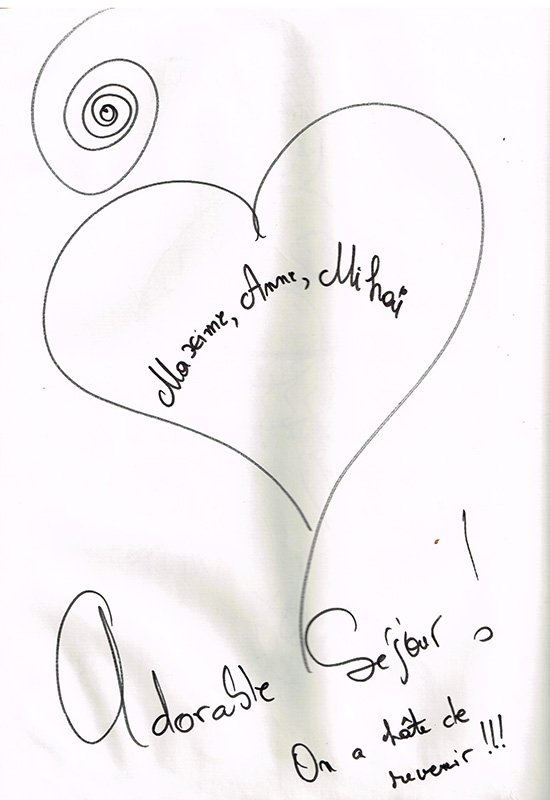 Maxime, Anne, Mihaï
Adorable Séjour !
On a hâte de
revenir !!!